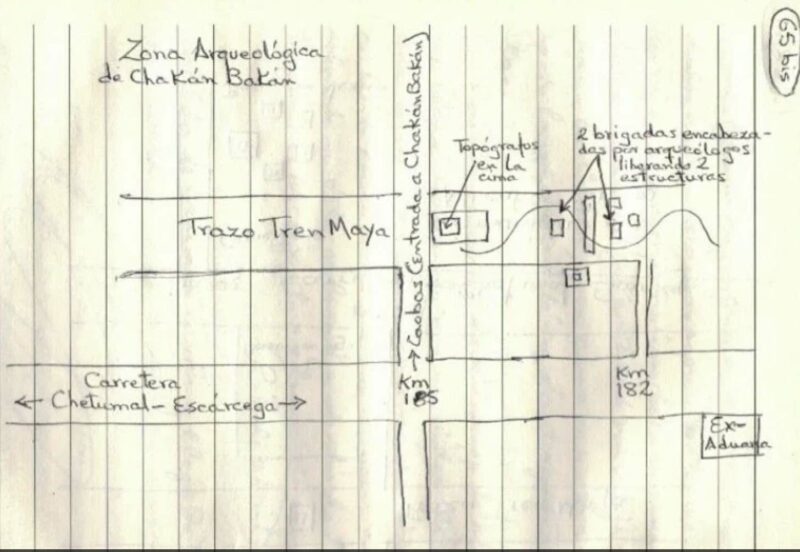 65 bis
Zona Arqueológica
de Chakán Bakán
Caobas (entrada a Chakán Bakán)
Topógrafos
en la
cima
2 brigadas encabeza-
das por arqueólogos
liberando 2
estructuras
Trazo Tren Maya
Carretera
Chetumal-Escárcega
Km
185
Km
182
Ex-
Aduana